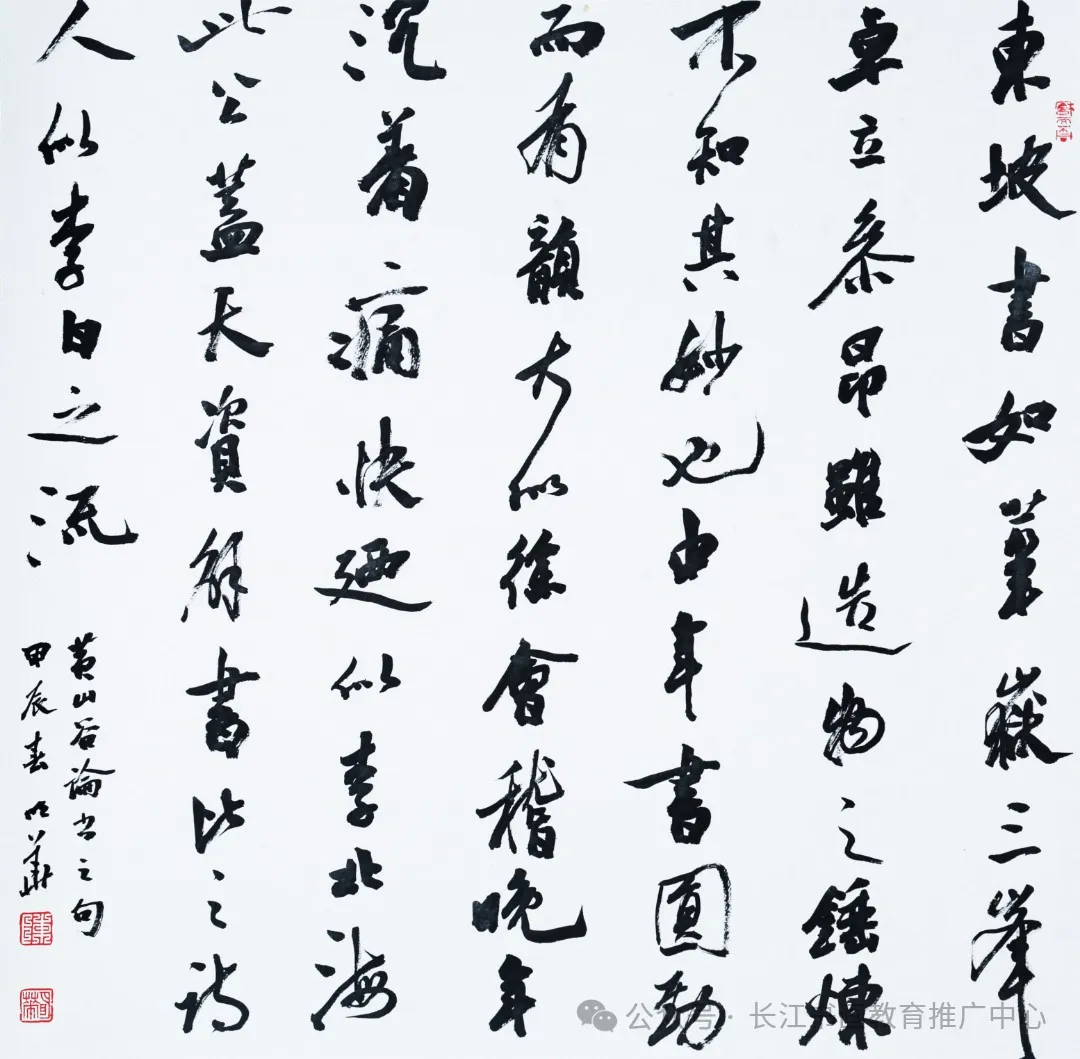 東坡書如華嶽三峯
卓立參昂雖造物之錘煉
不知其妙也中年書圓勁
而有韻大似徐會稽晚年
沉著痛快廼似李北海
此公蓋天資解書比之詩
人似李白之流
黃山谷論書之句
甲辰春 明華
公众号·长江书画教育推广中心